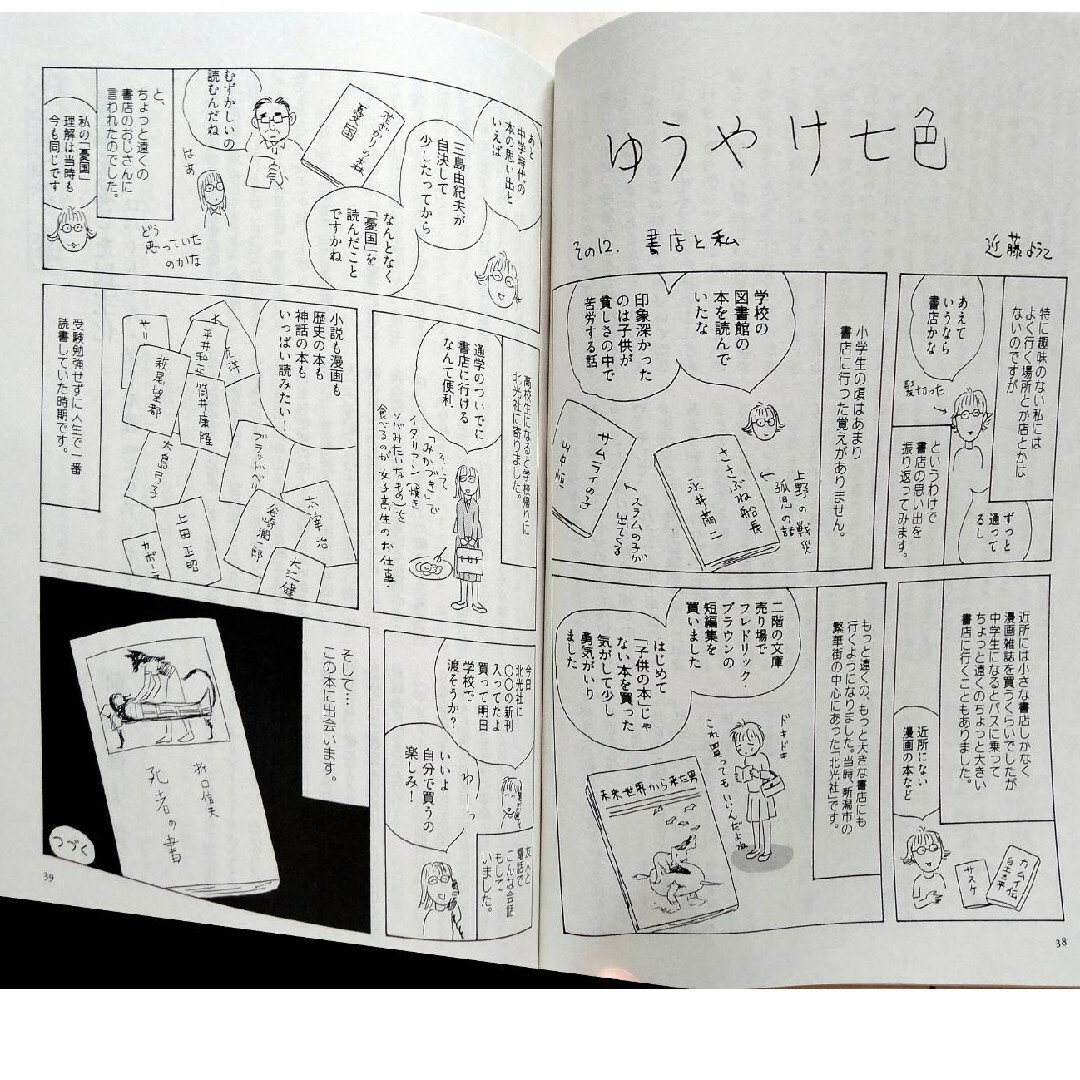 ゆうやけ七色
その12. 書店と私
近藤ようこ
特に趣味のない私には
よく行く場所とか店とかは
ないのですが
あえて
いうなら
書店かな
髪切った
ずっと
通って
るし
というわけで
書店の思い出を
振り返ってみます。
小学生の頃はあまり
書店に行った覚えがありません。
学校の
図書館の
本を読んで
いたな
印象深かった
のは子供が
貧しさの中で
苦労する話
上野の戦災
孤児の話
ささぶね船長
永井萠二
サムライの子
山中恒
スラムの子が
出てくる
近所には小さな書店しかなく
漫画雑誌を買うくらいでしたが
中学生になるとバスに乗って
ちょっと遠くのちょっと大きい
書店に行くこともありました。
近所にない
漫画の本など
カムイ伝
サスケ
もっと遠くの、もっと大きな書店にも
行くようになりました。当時、新潟市の
繁華街の中心にあった「北光社」です。
二階の文庫
売り場で
フレドリック・
ブラウンの
短編集を
買いました
はじめて
「子供の本」じゃ
ない本を買った
気がして少し
勇気がいり
ました
ドキドキ
これ買ってもいいんだよね
未来世界から来た男
38
あと
中学時代の
本の思い出と
いえば
三島由紀夫が
自決して
少したってから
なんとなく
「憂国」を
読んだこと
ですかね
花ざかりの森
憂国
むずかしいの
読むんだね
はぁ
と、
ちょっと遠くの
書店のおじさんに
言われたのでした。
私の「憂国」
理解は当時も
今も同じです
どう
思っていた
のかな
高校生になると学校帰りに
北光社に寄りました。
通学のついでに
書店に行ける
なんて便利
「みかづき」で
イタリアン(焼き
そばみたいなもの)を
食べるのが女子高生のお仕事
小説も漫画も
歴史の本も
神話の本も
いっぱい読みたい
平井和正
筒井康隆
萩尾望都
大島弓子
ブラッドベリ
太宰治
谷崎潤一郎
上田正昭
大江健
カポーテ
受験勉強せずに人生で一番
読書していた時期です。
今日
北光社に
〇〇の新刊
入ってたよ
買って明日
学校で
渡そうか?
わーっ
いいよ
自分で買うの
楽しみ!
友人と
電話で
こんな会話
もして
いました。
そして…
この本に出会います。
折口信夫
死者の書
つづく
39